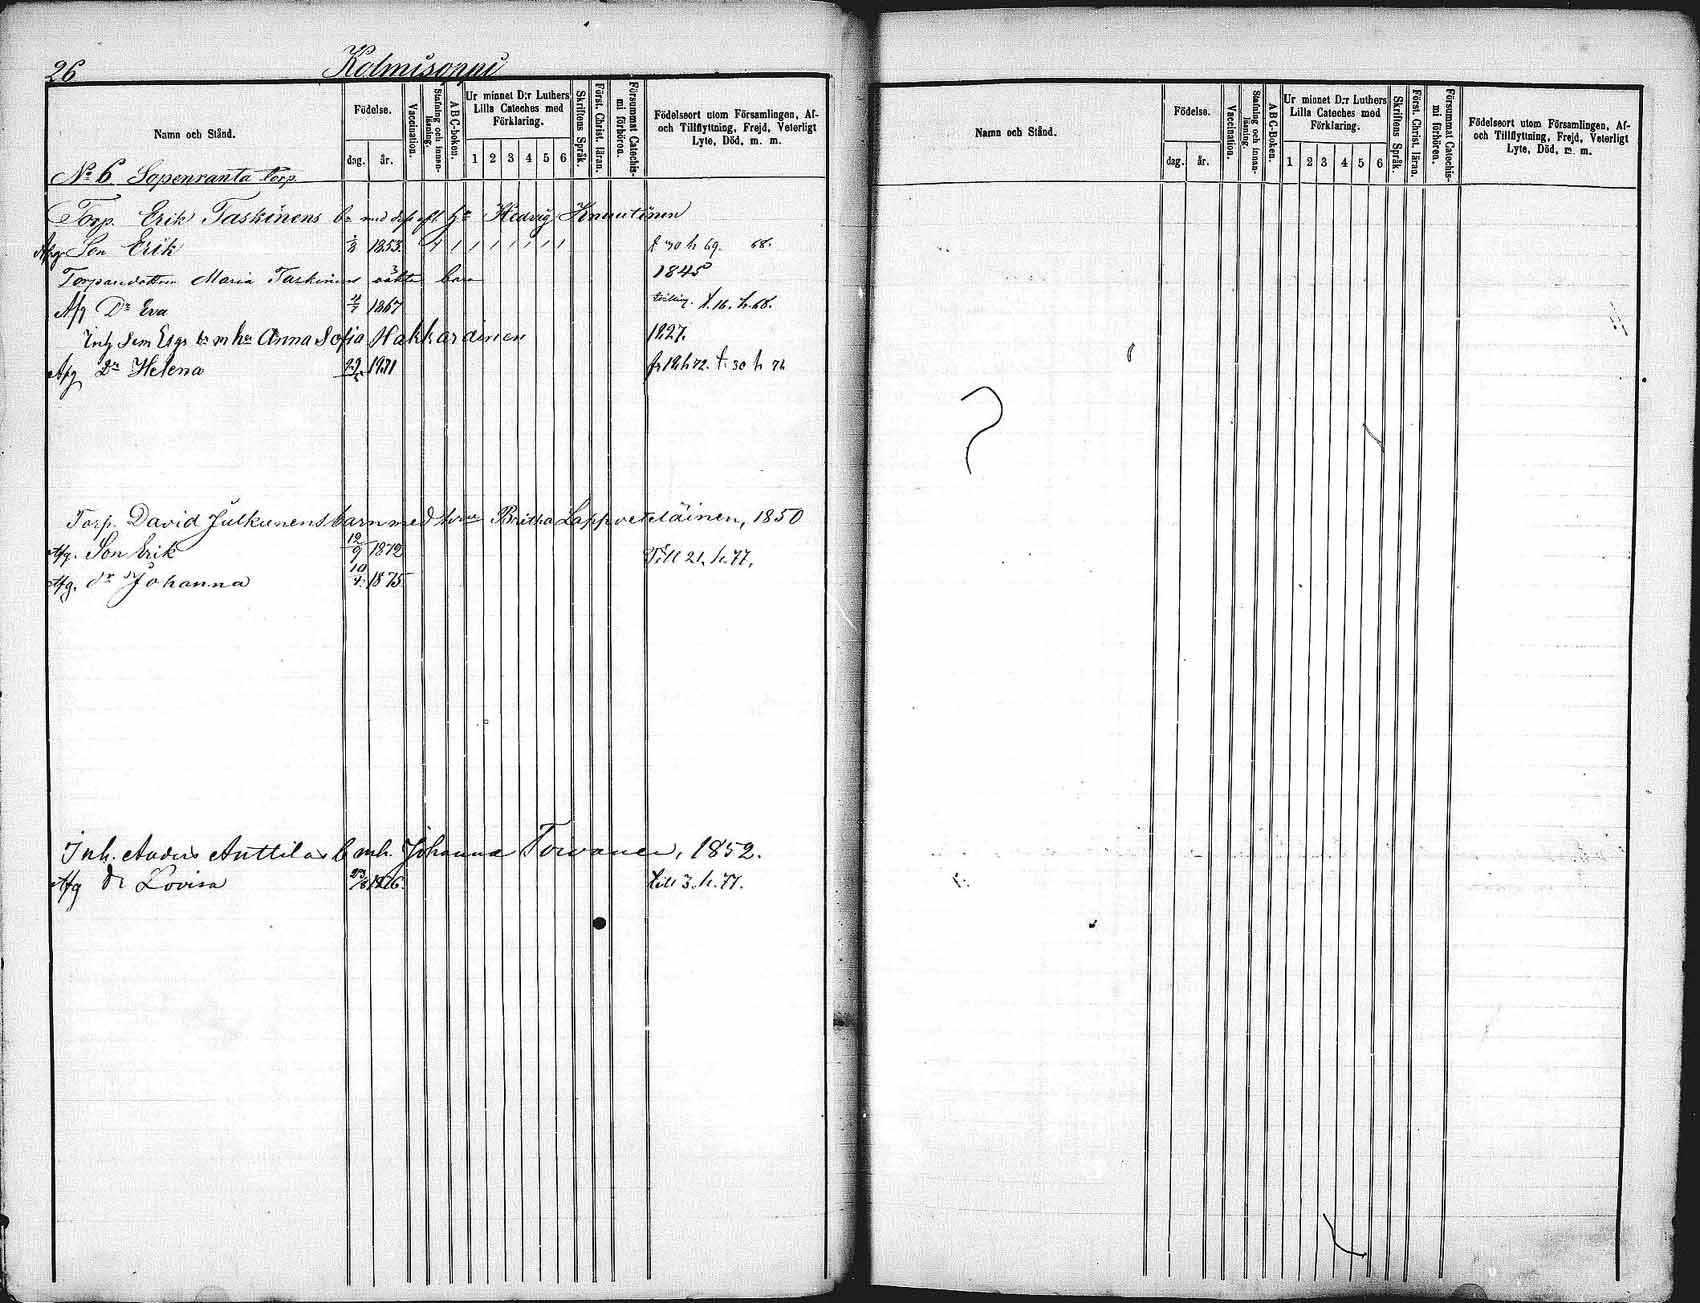 26 Kolmisoppi
Namn och Stånd.
Födelse.
dag. år.
Vaccination.
Stafning och innan-läsning.
ABC-boken.
Ur minnet D:r Luthers Lilla Cateches med Förklaring.
1 2 3 4 5 6
Skriftens Språk.
Först. Christ. läran.
Försummat Catechis-mi förhören.
Födelseort utom Församlingen, Af- och Tillflyttning, Frejd, Veterligt Lyte, Död, m. m.
No 6 Sopenranta torp
Torp. Erik Taskinens bn med hu Hedvig Knuutinen
Afg. Son Erik 1853 1 1 1 1 1 1 1 † 30 h 69. 68.
Torparedottren Maria Taskinens oäkta barn 1845
Afg Dr Eva 1867 tvilling. †. 16. h. 68.
Anna Sofia Hakkarainen 1827.
Afg Dr Helena 29 1871 fr 12 h 72. † 30 h 72
Torp. David Julkunens barn med hu Britha Lappveteläinen, 1850
Afg. Son Erik 12/9 1872 Till 21. h. 77.
Afg. dr Johanna 10 1875
Inh. Anders Anttilas b mh. Johanna Toivanen, 1852.
Afg dr Lovisa 1876 till 3. h. 77.
Namn och Stånd.
Födelse.
dag. år.
Vaccination.
Stafning och innan-läsning.
ABC-boken.
Ur minnet D:r Luthers Lilla Cateches med Förklaring.
1 2 3 4 5 6
Skriftens Språk.
Först. Christ. läran.
Försummat Catechis-mi förhören.
Födelseort utom Församlingen, Af- och Tillflyttning, Frejd, Veterligt Lyte, Död, m. m.